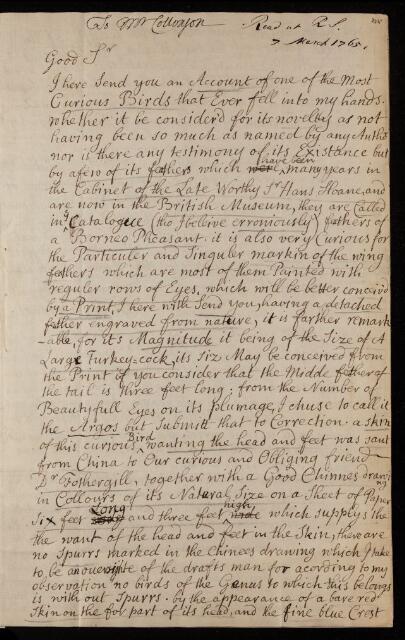 To Mr Collinson Read at R S.
7 March 1765.
Good Sr
I here Send you an Account of one of the Most
Curious Birds that Ever fell into my hands.
whether it be considerd for its novelty as not
having been so much as named by any Autho
nor is there any testimony of its Existance but
by a few of its fethers which have been many years in
the Cabinet of the Late Worthy Sr Hans Sloane, and
are now in the British Museum, they are Called
in ye Catalogue (tho I beleive erroniously) fethers of
a Borneo Pheasant. it is also very Curious for
the Particuler and Singuler markin of the wing
fethers which are most of them Painted with
reguler rows of Eyes, which will be better conceivd
by a Print, I here with Send you, having a detached
fether engraved from nature, it is farther remark
-able, for its Magnitude it being of the Size of A
Large Turkey-cock, its Siz May be conceived from
the Print if you consider that the Midde fether of
the tail is three feet long: from the Number of
Beautyfull Eyes on its plumage, I chuse to call it
the Argos but Submitt that to Correction. a skin
of this curious Bird wanting the head and feet was sent
from China to Our curious and Obliging friend
Dr Fothergill, together with a Good Chinnes drawing
in Collours of its Natural Size on a Sheet of Paper
Six feet Long and three feet high which supplys the
the want of the head and feet in the Skin, there are
no Spurrs marked in the Chinees drawing which I take
to be an of the drafts man for acording to my
observation no birds of the Genus to which this belongs
is with out Spurrs. by the appearance of a bare red
Skin on the for part of its head, and the fine blue Crest